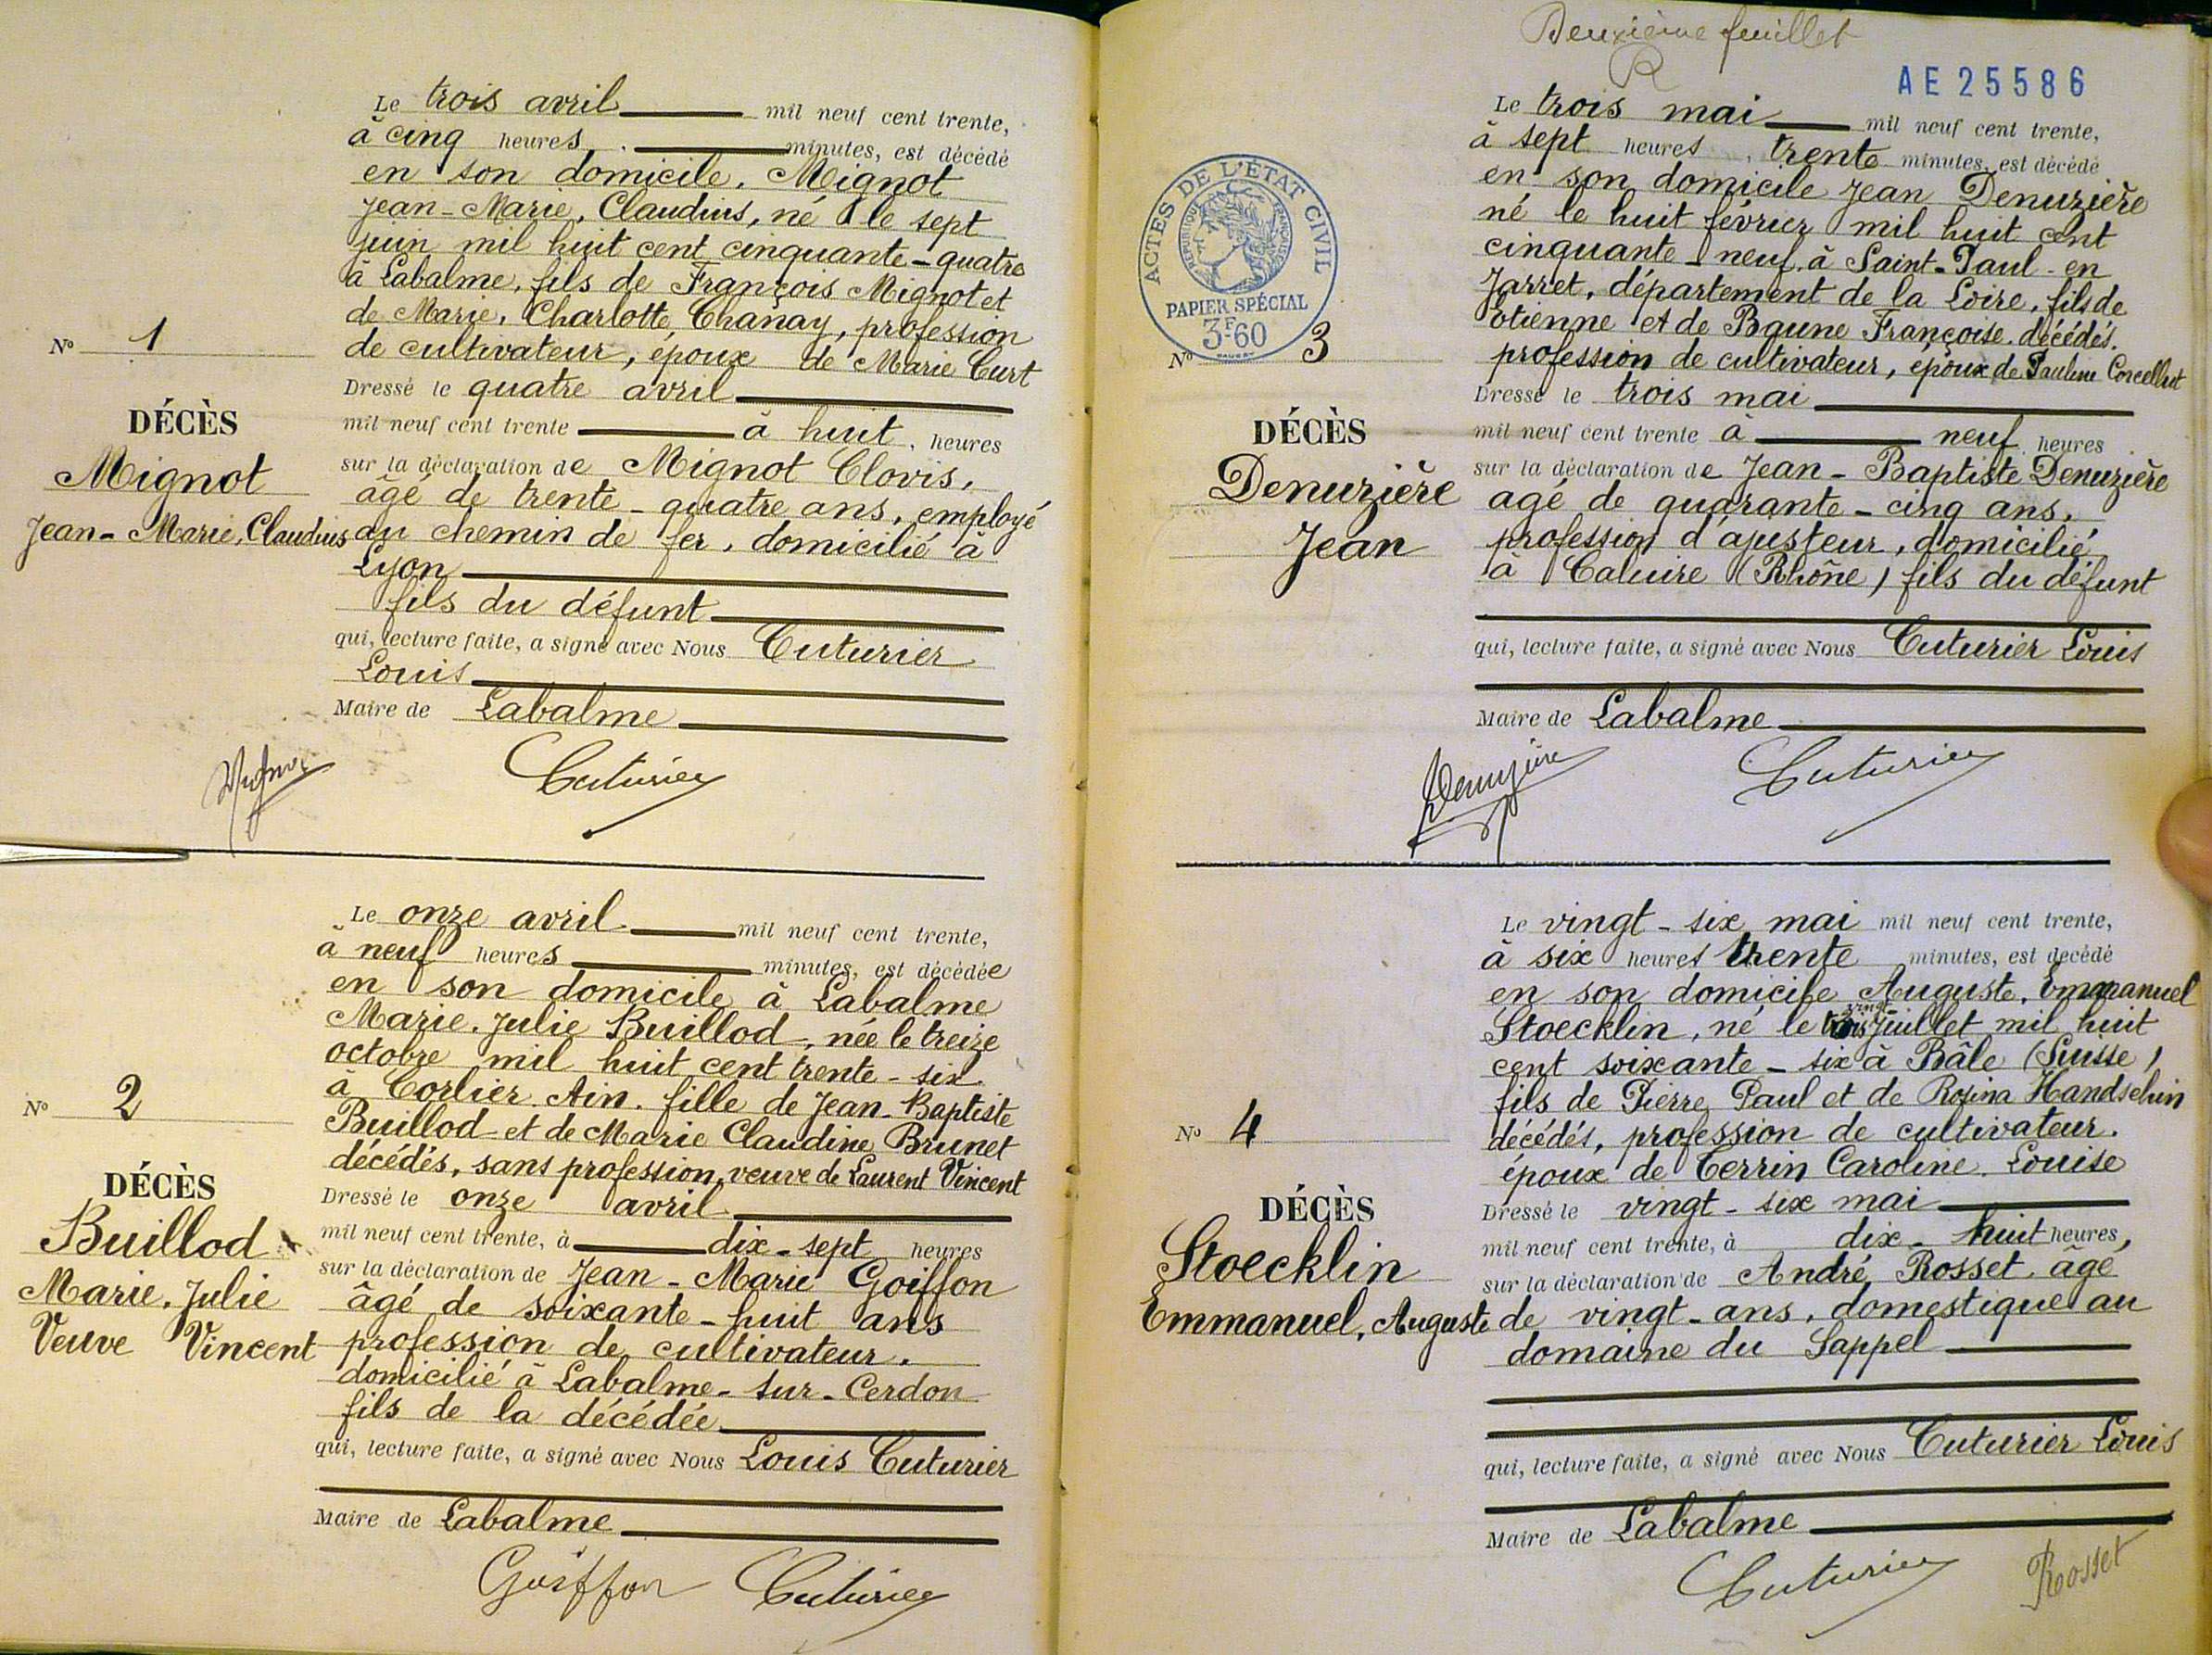 Le trois avril mil neuf cent trente,
à cinq heures minutes, est décédé
en son domicile, Mignot
Jean-Marie, Claudius, né le sept
juin mil huit cent cinquante-quatre
à Labalme, fils de François Mignot et
de Marie, Charlotte Chanay, profession
de cultivateur, époux de Marie Curt
Nº 1
DÉCÈS
Mignot
Jean-Marie, Claudius
Dressé le quatre avril
mil neuf cent trente à huit, heures
sur la déclaration de Mignot Clovis,
âgé de trente-quatre ans, employé
au chemin de fer, domicilié à
Lyon
fils du défunt
qui, lecture faite, a signé avec Nous Cuturier
Louis
Maire de Labalme
Cuturier
Le onze avril mil neuf cent trente,
à neuf heures minutes, est décédée
en son domicile à Labalme
Marie, Julie Buillod, née le treize
octobre mil huit cent trente-six
à Corlier Ain. fille de Jean-Baptiste
Buillod et de Marie Claudine Brunet
décédés, sans profession, veuve de Laurent Vincent
Nº 2
DÉCÈS
Buillod
Marie, Julie
Veuve Vincent
Dressé le onze avril
mil neuf cent trente, à dix-sept heures
sur la déclaration de Jean-Marie Goiffon
âgé de soixante-huit ans
profession de cultivateur,
domicilié à Labalme-sur-Cerdon
fils de la décédée
qui, lecture faite, a signé avec Nous Louis Cuturier
Maire de Labalme
Goiffon Cuturier
Deuxième feuillet
R
AE 25586
ACTES DE L'ÉTAT CIVIL
RÉPUBLIQUE FRANÇAISE
PAPIER SPÉCIAL
3F60
Le trois mai mil neuf cent trente,
à sept heures, trente minutes, est décédé
en son domicile Jean Denuzière
né le huit février mil huit cent
cinquante-neuf à Saint-Paul-en
Jarret, département de la Loire, fils de
Etienne et de Baune Françoise, décédés.
profession de cultivateur, époux de Pauline
Nº 3
DÉCÈS
Denuzière
Jean
Dressé le trois mai
mil neuf cent trente à neuf heures
sur la déclaration de Jean-Baptiste Denuzière
agé de quarante-cinq ans,
profession d'ajusteur, domicilié
à Caluire (Rhône) fils du défunt
qui, lecture faite, a signé avec Nous Cuturier Louis
Maire de Labalme
Denuzière Cuturier
Le vingt-six mai mil neuf cent trente,
à six heures trente minutes, est décédé
en son domicile Auguste, Emmanuel
vingt-
Stoecklin, né le trois Juillet mil huit
cent soixante-six à Bâle (Suisse)
fils de Pierre Paul et de Rosina Handschin
décédés, profession de cultivateur.
époux de Terrin Caroline, Louise
Nº 4
DÉCÈS
Stoecklin
Emmanuel, Auguste
Dressé le vingt-six mai
mil neuf cent trente, à dix-huit heures,
sur la déclaration de André Rosset, âgé
de vingt-ans, domestique au
domaine du Sappel
qui, lecture faite, a signé avec Nous Cuturier Louis
Maire de Labalme
Cuturier Rosset